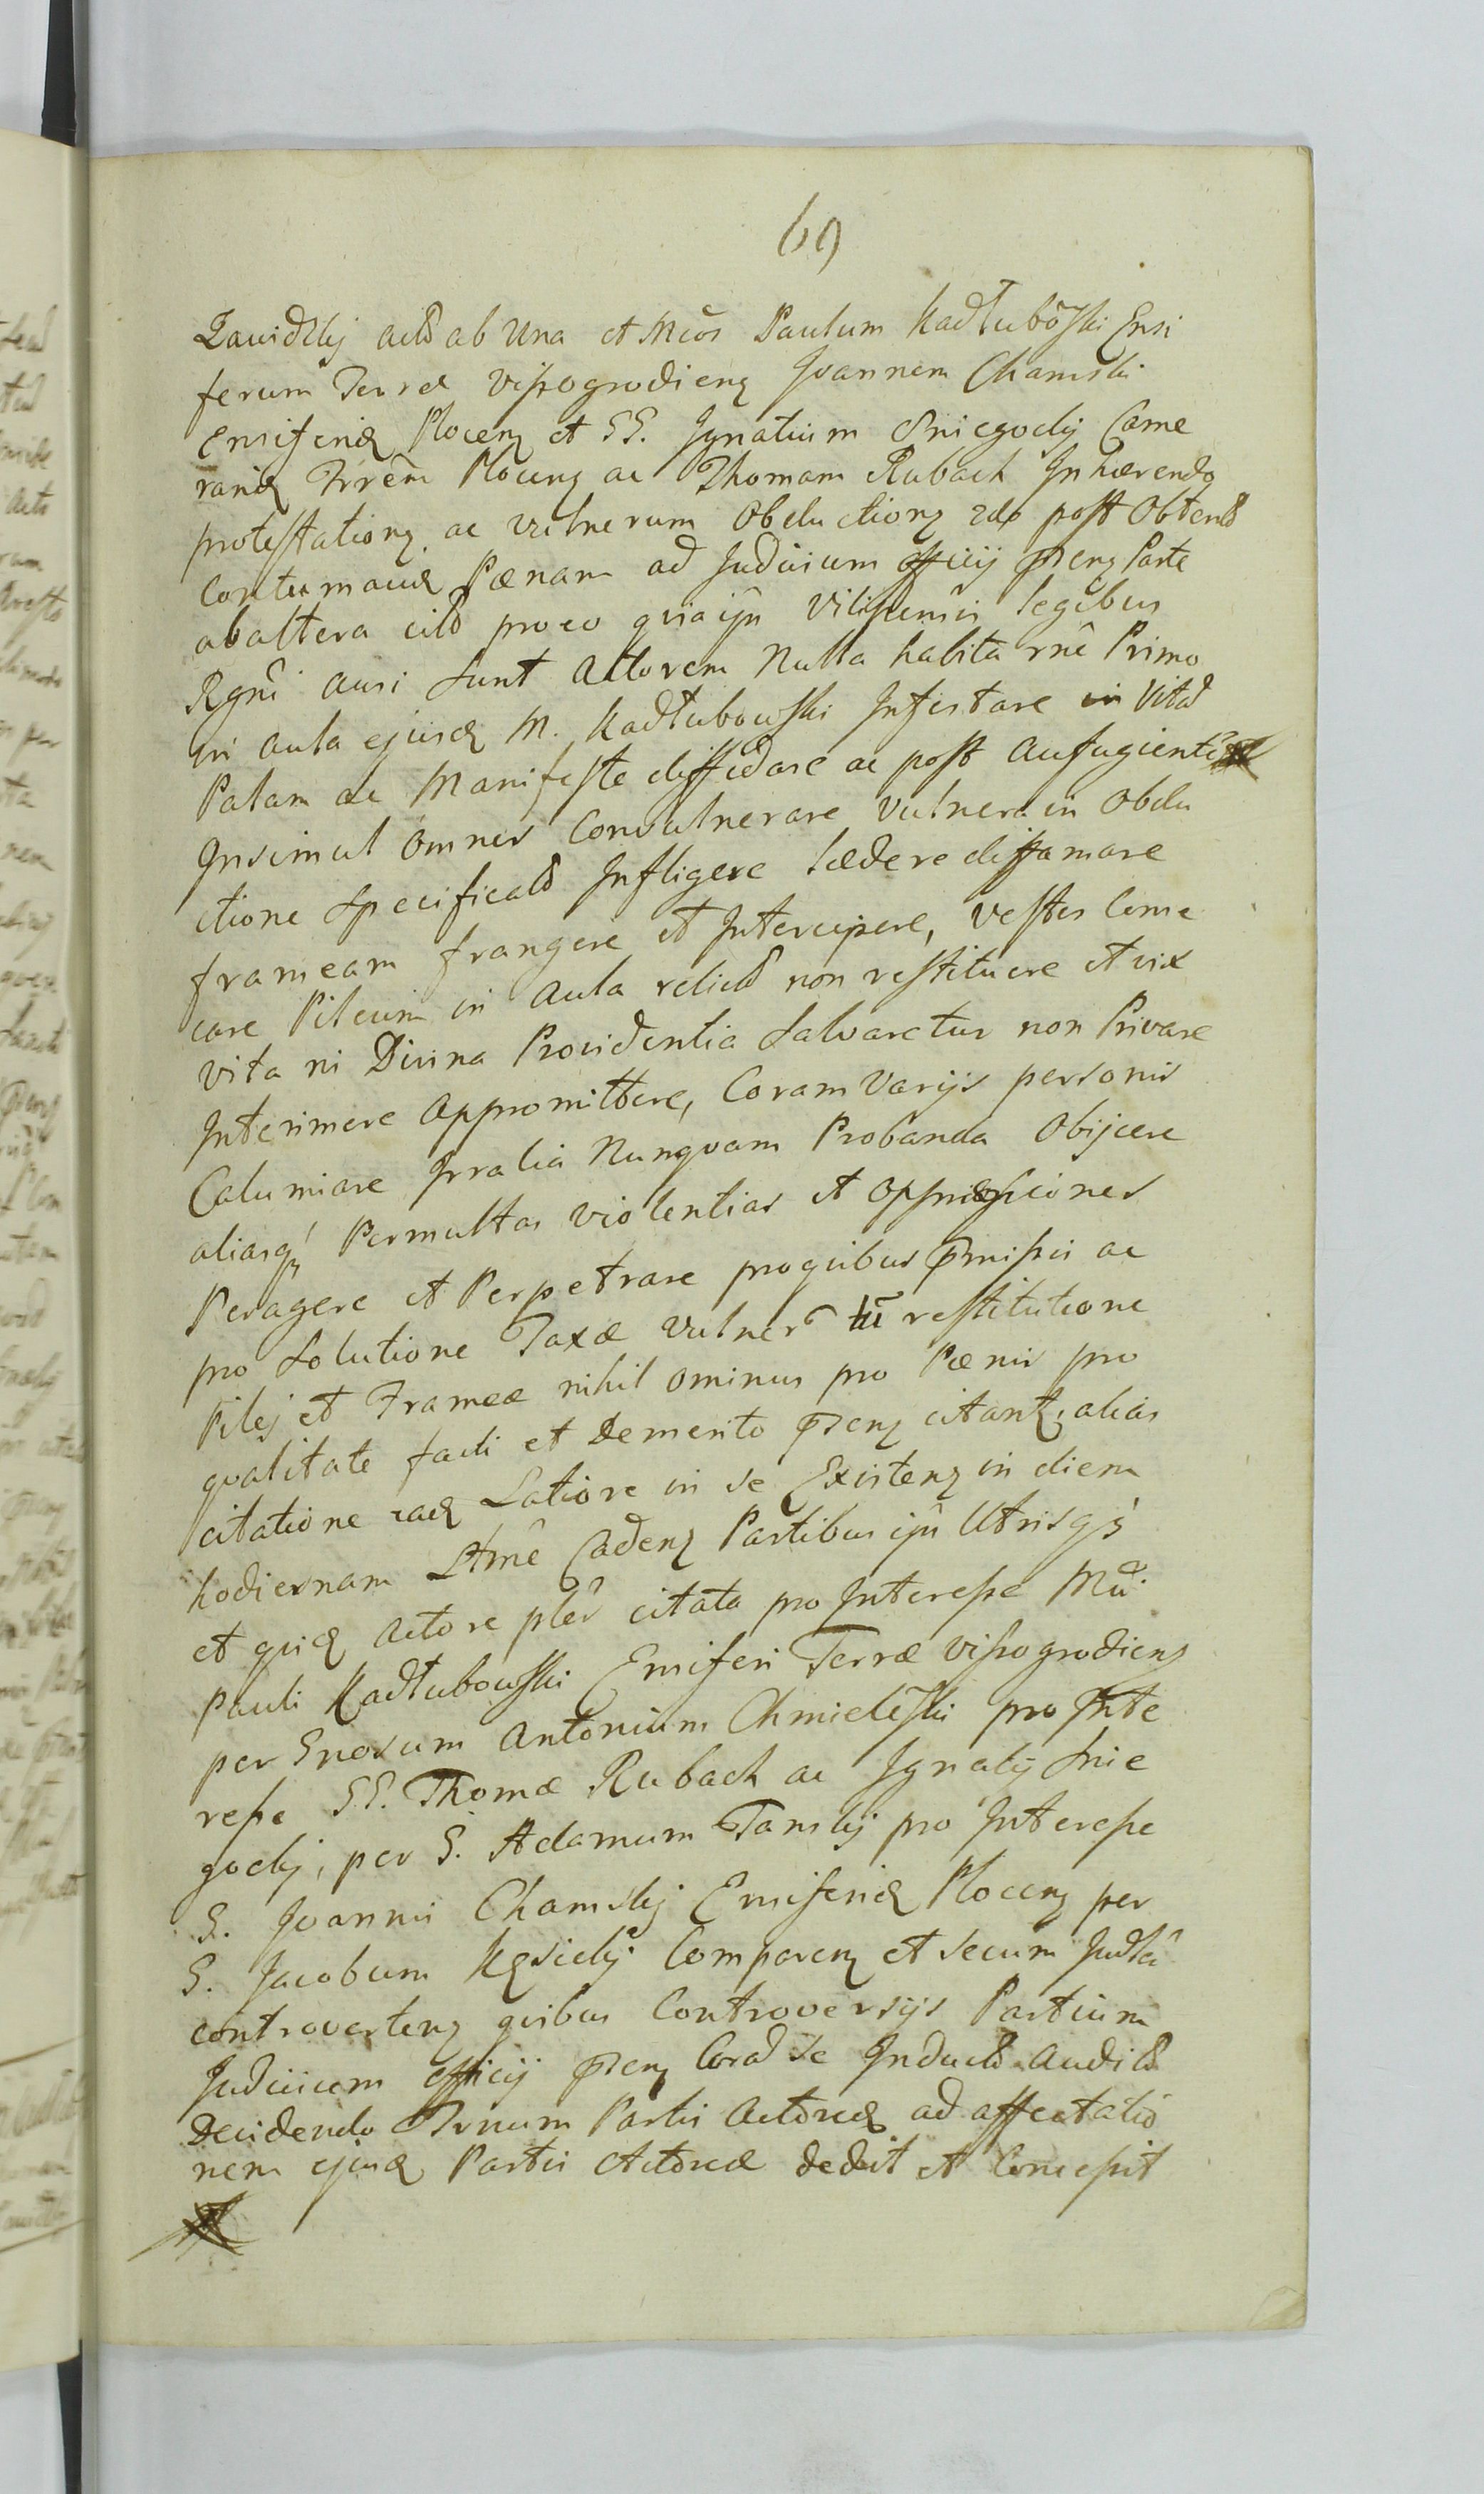 69
Zawidzkj actô ab Una et Mcôs Paulum Kadłubôski Ensi
ferum Terræ vissogrodienʒ Joannem Chamski
Ensiferidʒ Plocenʒ et SS. Ignatium Sniegockj Came
raridʒ Plocenʒ ac Thomam Rubach Inhærendo
protestationʒ ac vulnerum Obductionʒ post Obtentô
Contumaciæ Pænam ad Judicium officij Parte
ab altera citô pro eo quia ijŝ Vilipensis legibus
Rgnî ausi sunt Actorem Nulla habita rnê Primo
in aula ejusdʒ M. Kadłubowski Infestare in Vitâ
Palam ac Manifeste diffidare ac post aufugientê
Insimul omnes Convulnerare vulnera in Obdu
ctione Specificatô Infligere lædere diffamare
frameam frangere et Intercipere, vestes
care Pileum in Aula relictô non restituere et vix
vita ni Divina Providentia Salvaretur non Privare
Interimere appromittere, Coram Varijs personis
Calumiare Irralia Nunquam Probanda Obijcere
aliasqʒ Permultas violentias et oppressiones
Peragere et Perpetrare proquibus Pmissis ac
pro Solutione Taxæ vulner tû restitutione
Pilej et Frameæ nihil ominus pro Pænis pro
qualitate facti et Demerito citant, alias
citatione eadʒ Latiore in se Existenʒ in diem
hodiernam Cadenʒ Partibus ijŝ Utrisqʒ
et quidʒ Actore citata pro Interesse
Pauli Kadłubowski Ensiferi Terræ vissogrodienʒ
per Gnosum Antonium Chmielêski pro Inte
resse SS. Thomæ Rubach ac Ignatij Snie
gockj, per S. Adamum Tanskj pro Interesse
S. Joannis Chamskj Ensiferidʒ Plocenʒ per
S. Jacobum Kęsickj Comparenʒ et secum
controvertenʒ quibus Controversijs Partium
Judicium officij Corâ se Inductô Auditô
Decidendo Partis Actoreæ ad affectatio
nem ejusdʒ Partis Actoreæ dedit et Concessit